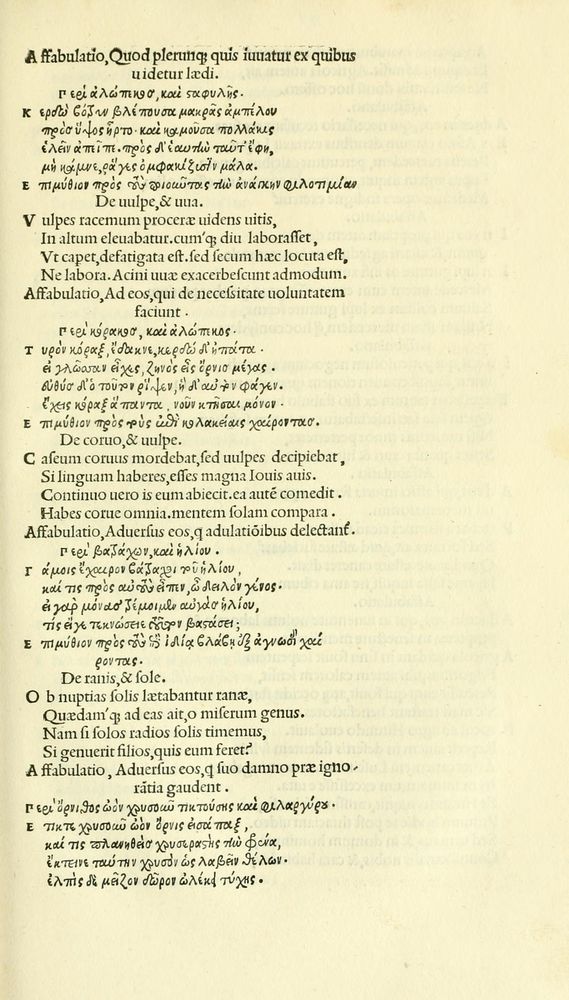 Affabulatio, Quod plerunq; quis iuuatur ex quibus
uidetur lædi.
Περὶ ἀλώπεκος, καὶ σταφυλῆς.
Κερδὼ βότρυν βλέπουσα μακρᾶς ἀμπέλου
πρὸς ὕψος ἦρτο. καὶ καμοῦσα πολλάκις
ἑλεῖν ἀπεῖπε. πρὸς δ' ἑαυτὴν ταῦτ' ἔφη,
μὴ κάμνε, ῥᾶγες ὀμφακίζουσιν μάλα.
Ἐπιμύθιον πρὸς τοὺς ποιοῦντας τὴν ἀνάγκην φιλοτιμίαν
De uulpe, & uua.
Vulpes racemum proceræ uidens uitis,
In altum eleuabatur. cum'q; diu laborasset,
Vt capet, defatigata est. sed secum hæc locuta est,
Ne labora. Acini uuæ exacerbescunt admodum.
Affabulatio, Ad eos, qui de necessitate uoluntatem
faciunt.
Περὶ κόρακος, καὶ ἀλώπεκος.
Τυρὸν κόραξ, ἔδακνε, κερδὼ δ' ἠπάτα.
εἰ γλῶσσαν εἶχες, ζηνὸς εἶς ὄρνις μέγας.
εὐθὺς δ' ὁ τοῦτον ῥίψεν, ἡ δ' αὖ τὸν φάγεν.
ἔχεις κόραξ ἅπαντα, νοῦν κτῆσαι μόνον.
Ἐπιμύθιον πρὸς τοὺς ἐπὶ κολακείαις χαίροντας.
De coruo, & uulpe.
Caseum coruus mordebat, sed uulpes decipiebat,
Si linguam haberes, esses magna Iouis auis.
Continuo uero is eum abiecit. ea autẽ comedit.
Habes corue omnia. mentem solam compara.
Affabulatio, Aduersus eos, q adulatiõibus delectant̃.
Περὶ βατράχων, καὶ ἡλίου.
Γάμοις ἔχαιρον βάτραχοι τοῦ ἡλίου,
καί τις πρὸς αὐτοὺς εἶπεν, ὦ δειλὸν γένος.
εἰ γὰρ μόνας τρέμοιμεν αὐγὰς ἡλίου,
τίς εἴ γε τεκνώσειε βαστάσει;
Ἐπιμύθιον πρὸς τοὺς ἐπὶ ἰδίᾳ βλάβῃ ἐξ ἀγνωσί χαί
ροντας.
De ranis, & sole.
Ob nuptias solis lætabantur ranæ,
Quædam'q; ad eas ait, o miserum genus.
Nam si solos radios solis timemus,
Si genuerit filios, quis eum feret?
Affabulatio, Aduersus eos, q suo damno præ igno-
rãtia gaudent.
Περὶ ὄρνιθος ὠὸν χρυσοῦν τικτούσης καὶ φιλαργύρου.
Ἔτικτε χρυσοῦν ὠὸν ὄρνις εἰσάπαξ,
καί τις πλανηθεὶς χρυσεραστὴς τὴν φρένα,
ἔκτεινε ταύτην χρυσὸν ὡς λαβεῖν θέλων.
ἐλπὶς δὲ μεῖζον δῶρον ὠλέκει τύχης.